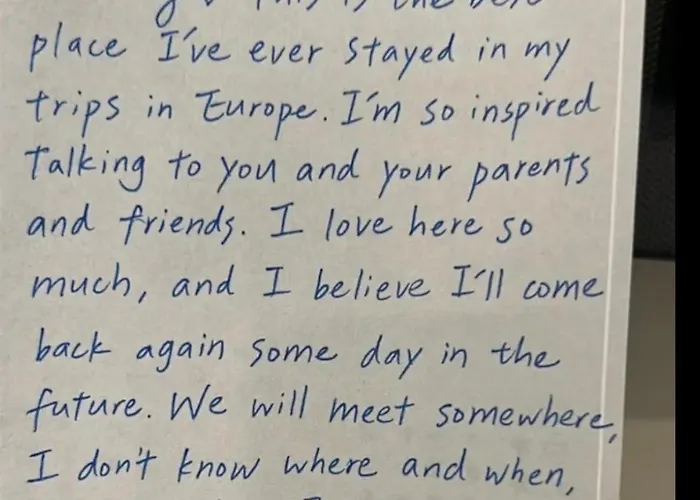 This is the best
place I've ever stayed in my
trips in Europe. I'm so inspired
Talking to you and your parents
and friends. I love here so
much, and I believe I'll come
back again some day in the
future. We will meet somewhere,
I don't know where and when,